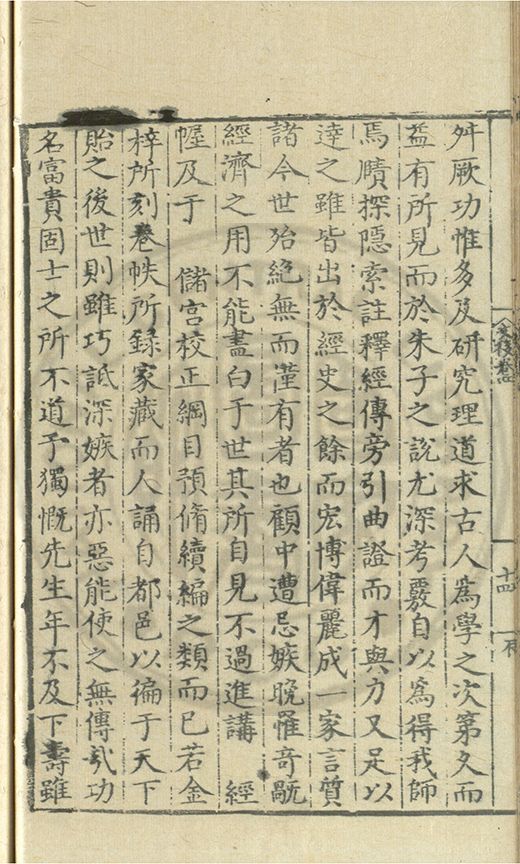 舛厥功惟多及研究理道求古人為學之次第久而
益有所見而於朱子之說尤深考覈自以為得我師
焉賾探隱索註釋經傳旁引曲證而才與力又足以
達之雖皆出於經史之餘而宏博偉麗成一家言質
諸今世殆絕無而僅有者也顧中遭忌嫉晚罹奇毀
經濟之用不能盡白于世其所自見不過進講 經
幄及于 儲宮校正綱目預脩續編之類而已若金
梓所刻卷帙所録家藏而人誦自都邑以徧于天下
貽之後世則雖巧詆深嫉者亦惡能使之無傳哉功
名富貴固士之所不道予獨慨先生年不及下壽雖
十四